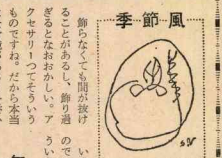 季節風
飾らなくても間が抜け
ることがあるし、飾り過
ぎるとなおおかしい。ア
クセサリーつてそういう
ものですね。だから本当